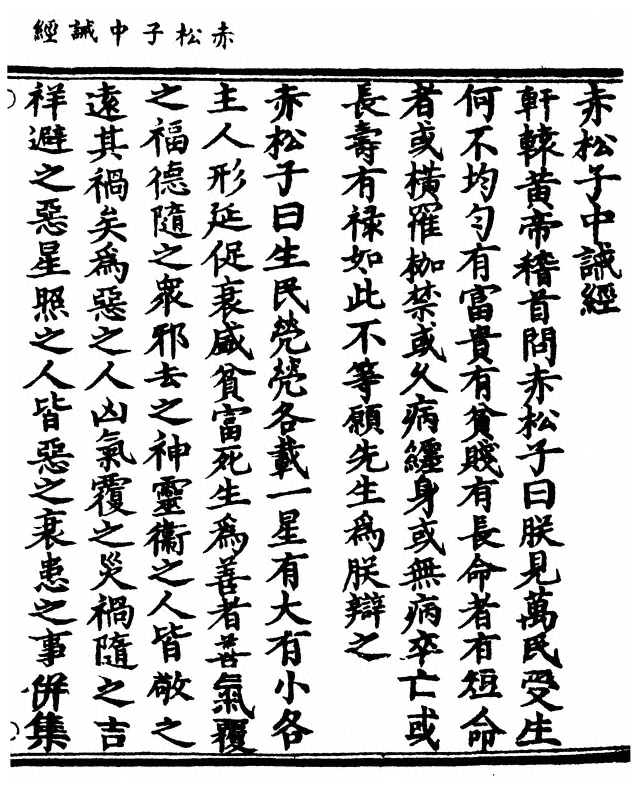 赤松子中誡經
赤松子中誡經
軒轅黄帝稽首問赤松子曰朕見萬民受生
何不均匀有富貴有貧賤有長命者有短命
者或横羅枷禁或久病纏身或無病卒亡或
長壽有禄如此不等願先生爲朕辯之
赤松子曰生民㷀㷀各載一星有大有小各
主人形延促衰盛貧富死生爲善者善氣覆
之福德隨之衆邪去之神靈衞之人皆敬之
遠其禍矣爲惡之人凶氣覆之災禍隨之吉
祥避之惡星照之人皆惡之衰患之事併集